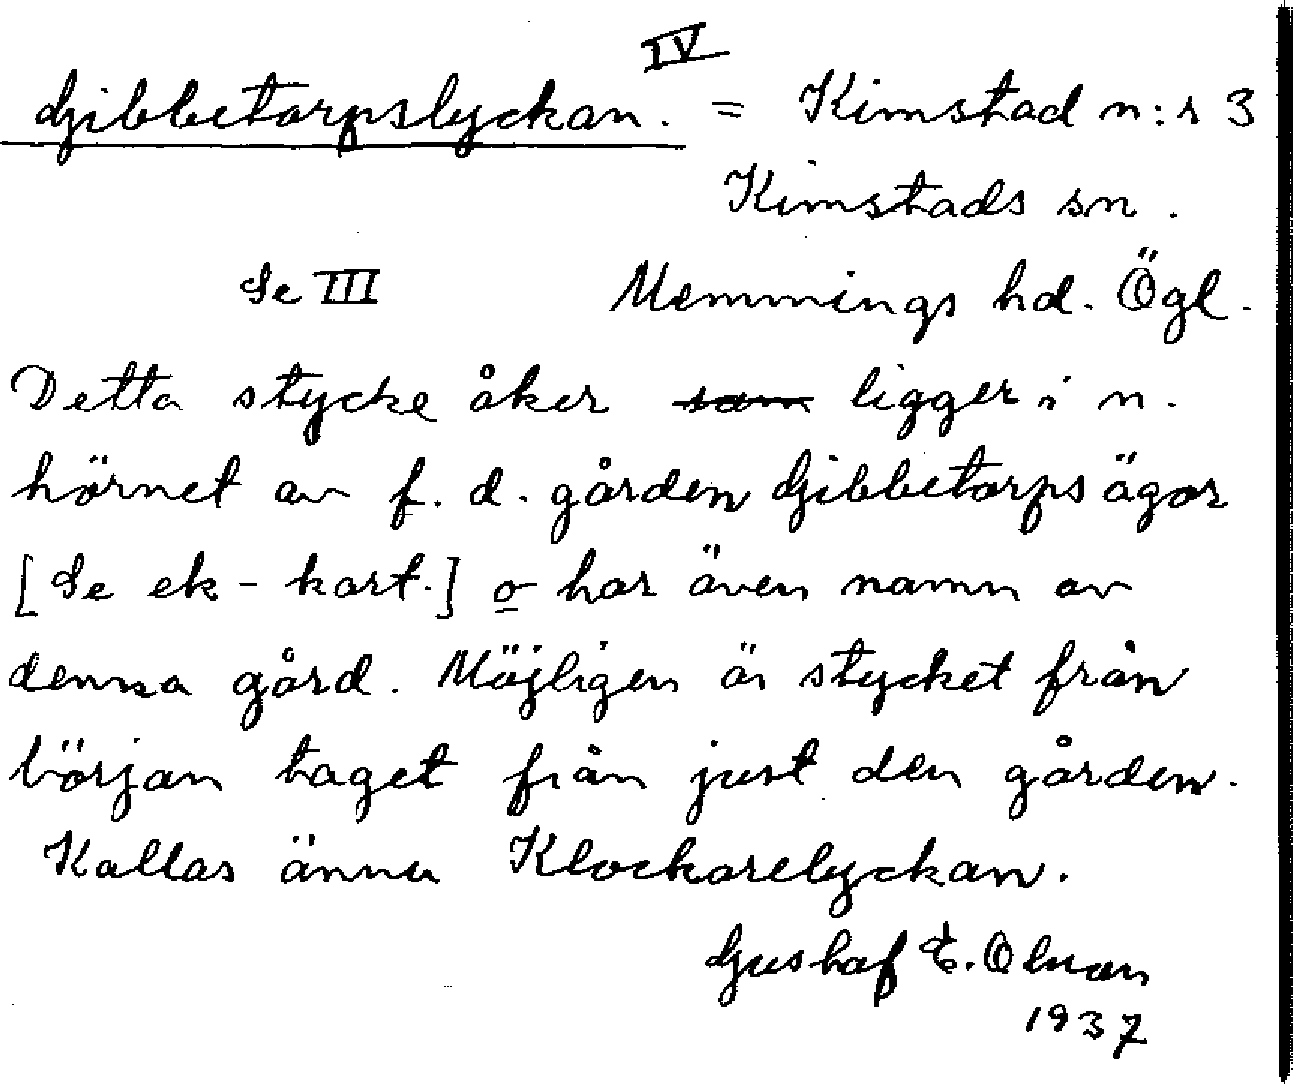 IV
Gibbetorpslyckan. = Kimstad n:r 3
Kimstads sn.
Se III Memmings hd. Ögl.
Detta stycke åker som ligger i n.
hörnet av f. d. gården Gibbetorps ägor
[Se ek-kart.] o har även namn av
denna gård. Möjligen är stycket från
början taget från just den gården.
Kallas ännu Klockarelyckan.
Gustaf E. Olman
1937